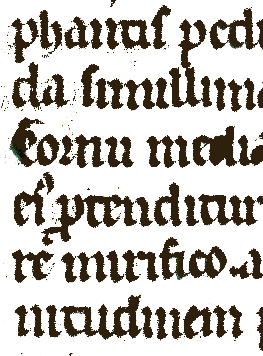 phantis pedi
da simillima
Cornu media
eiꝰ ꝓtenditur
rē mirifico. a
nitudinem